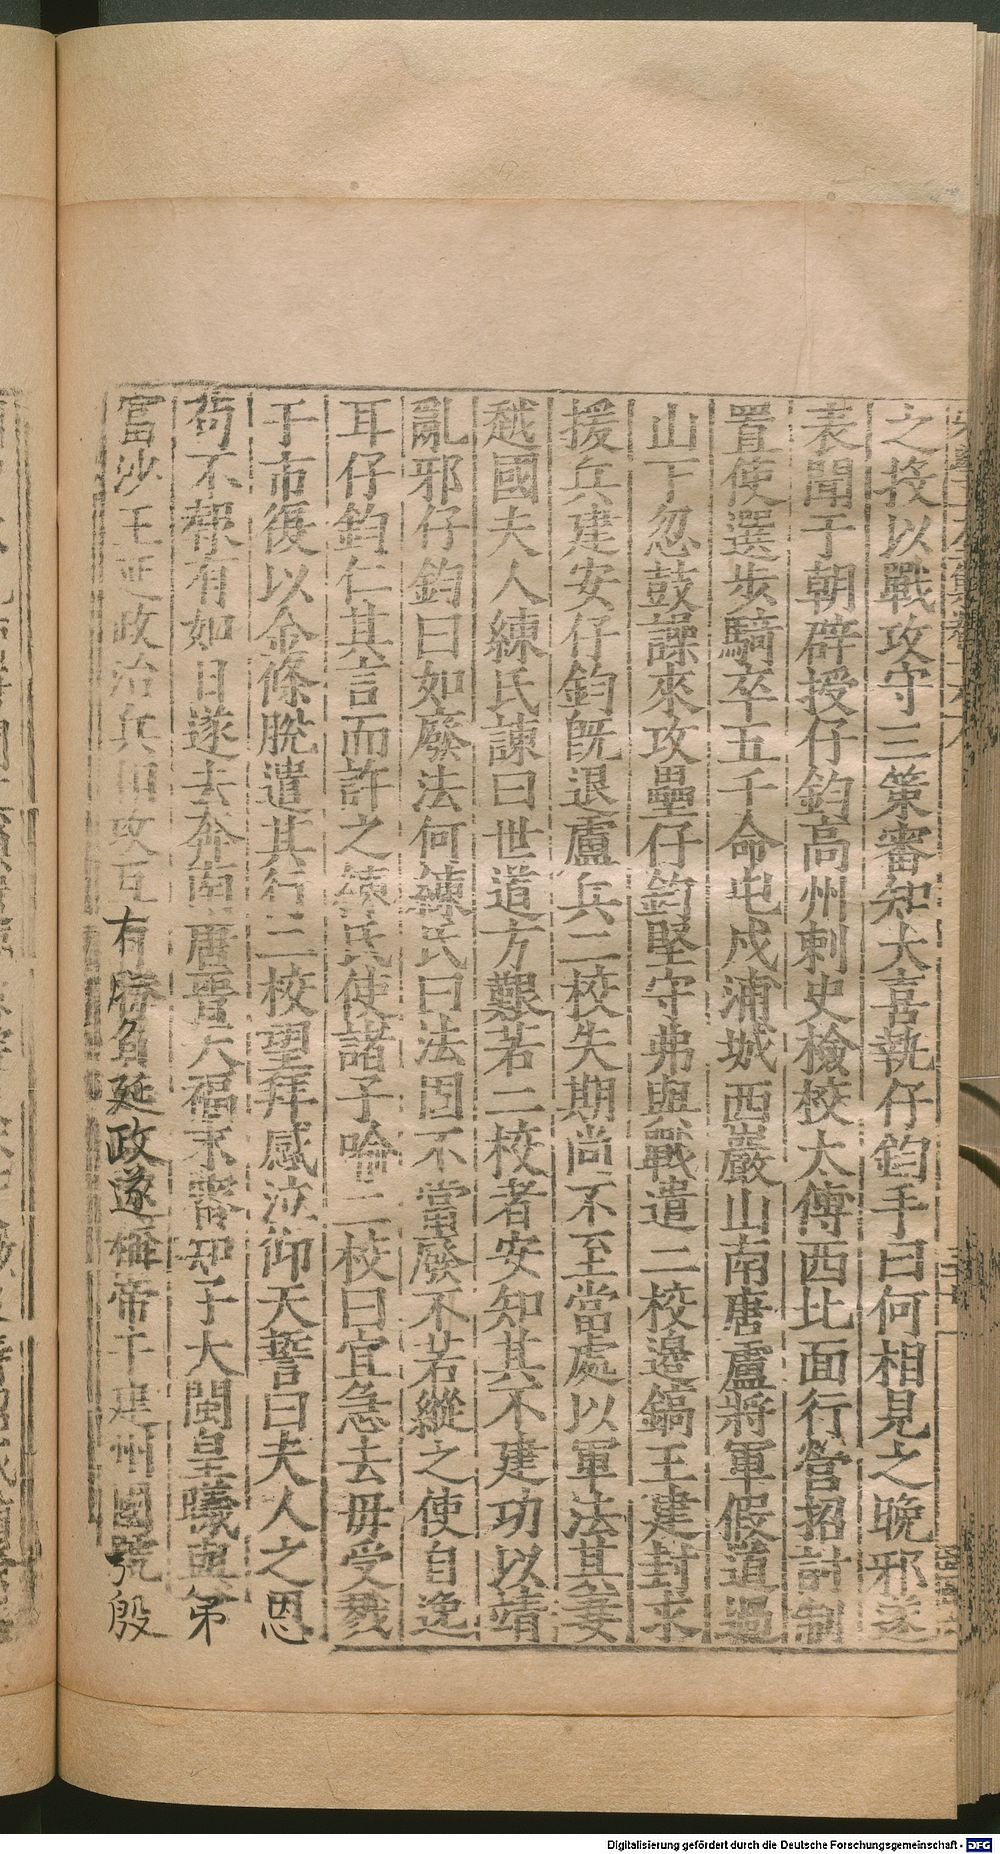 之投以戰攻守三策審知大喜執仔鈞手曰何相見之晚邪遂
表聞于朝辟授仔鈞高州刺史檢校太傅西北面行營招討制
置使選步騎卒五千命屯戍浦城西巖山南唐盧將軍假道過
山下忽鼓譟來攻壘仔鈞堅守弗與戰遣二校邊鎬王建封求
援兵建安仔鈞旣退盧兵二校失期尚不至當處以軍法其妻
越國夫人練氏諫曰世道方艱若二校者安知其不建功以靖
亂邪仔鈞曰如廢法何練氏曰法固不當廢不若縱之使自逸
耳仔鈞仁其言而許之練氏使諸子喩二校曰宜急去毋受戮
于市復以金條脫遣其行二校望拜感泣仰天誓曰夫人之恩
苟不報有如日遂去奔南唐晉天福末審知子大閩皇曦與弟
富沙王延政治兵相攻互有勝負延政遂稱帝于建州國號殷
Digitalisierung gefördert durch die Deutsche Forschungsgemeinschaft - DFG